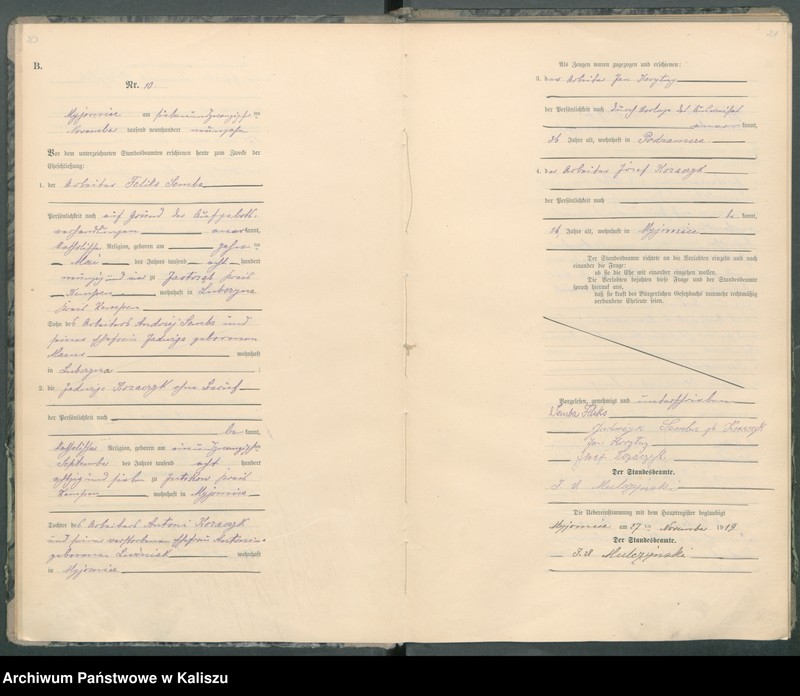 B.
Nr. 10.
Myjomice am siebenundzwanzigsten
November tausend neunhundert neunzehn
Vor dem unterzeichneten Standesbeamten erschienen heute zum Zwecke der
Eheschließung:
1. der Arbeiter Feliks Semba
der Persönlichkeit nach auf Grund der Aufgebots-
verhandlungen kannt,
katholischer Religion, geboren am zehnten
Mai des Jahres tausend acht hundert
neunzig und in Kreis
Kempen wohnhaft in
Kreis Kempen
Sohn des Arbeiters Andrzej Semba und
seiner Ehefrau Jadwiga geborenen
wohnhaft
in
2. die Jadwiga Kozaczyk ohne Beruf
der Persönlichkeit nach
be kannt,
katholischer Religion, geboren am einundzwanzigsten
September des Jahres tausend acht hundert
achtzig und sieben zu Kreis
Kempen wohnhaft in Myjomice
Tochter des Arbeiters Antoni Kozaczyk
und seiner verstorbenen Ehefrau
geborenen wohnhaft
in Myjomice
Als Zeugen waren zugezogen und erschienen:
3. der Arbeiter Jan
der Persönlichkeit nach durch Vorlage des
kannt,
36 Jahre alt, wohnhaft in Podzamcze
4. der Arbeiter Józef Kozaczyk
der Persönlichkeit nach
be kannt,
Jahre alt, wohnhaft in Myjomice
Der Standesbeamte richtete an die Verlobten einzeln und nach
einander die Frage:
ob sie die Ehe mit einander eingehen wollen.
Die Verlobten bejahten diese Frage und der Standesbeamte
sprach hierauf aus,
daß sie kraft des Bürgerlichen Gesetzbuchs nunmehr rechtmäßig
verbundene Eheleute seien.
Vorgelesen, genehmigt und unterschrieben
Semba Feliks
Semba Kozaczyk
Jan
Józef Kozaczyk
Der Standesbeamte.
Mulczynski
Die Uebereinstimmung mit dem Hauptregister beglaubigt
Myjomice am 27ten November 1919.
Der Standesbeamte.
Mulczynski
Archiwum Państwowe w Kaliszu